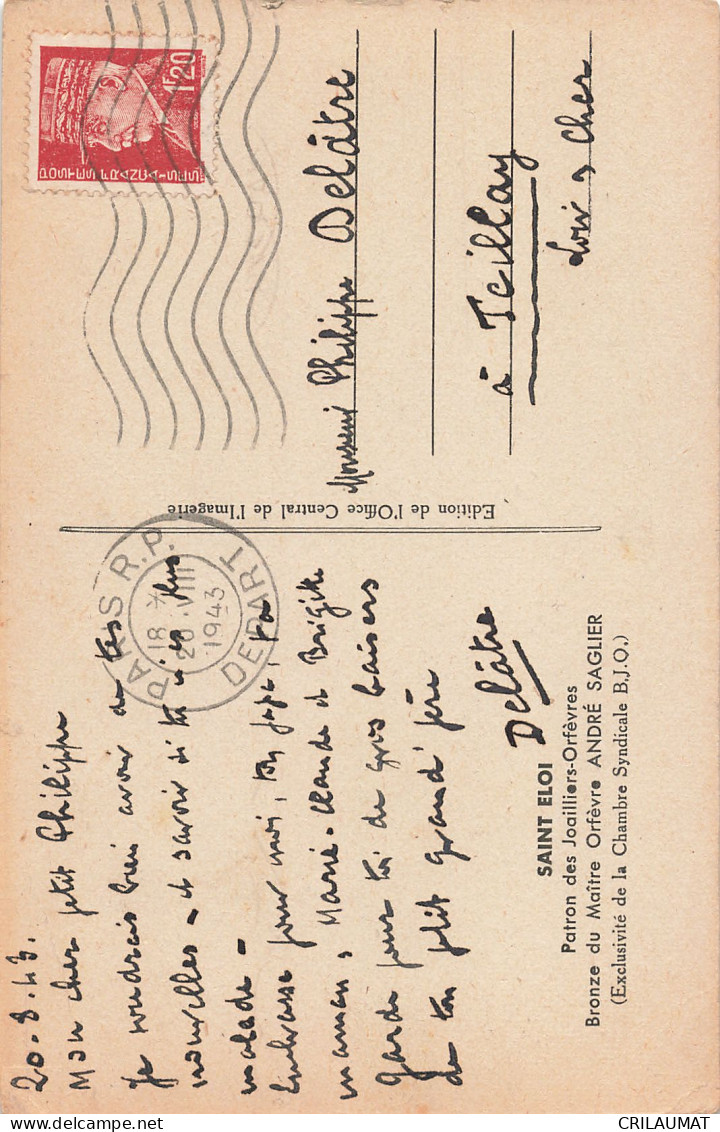 20.8.43.
Mon cher petit Philippe
Je voudrais bien avoir de tes
nouvelles - et savoir si tu n'es plus
malade -
Embrasse pour moi, ton papa, ta
maman, Marie-Claude et Brigitte
Garde pour toi de gros baisers
de ton petit grand'père
Delâtre
SAINT ELOI
Patron des Joailliers-Orfèvres
Bronze du Maître Orfèvre ANDRÉ SAGLIER
(Exclusivité de la Chambre Syndicale B.J.O.)
Edition de l'Office Central de l'Imagerie
PARIS R.P.
18 *
20 VIII
1943
DEPART
1F20
POSTES FRANÇAISES
Monsieur Philippe Delâtre
à Teillay
Loir & Cher
CRILAUMAT